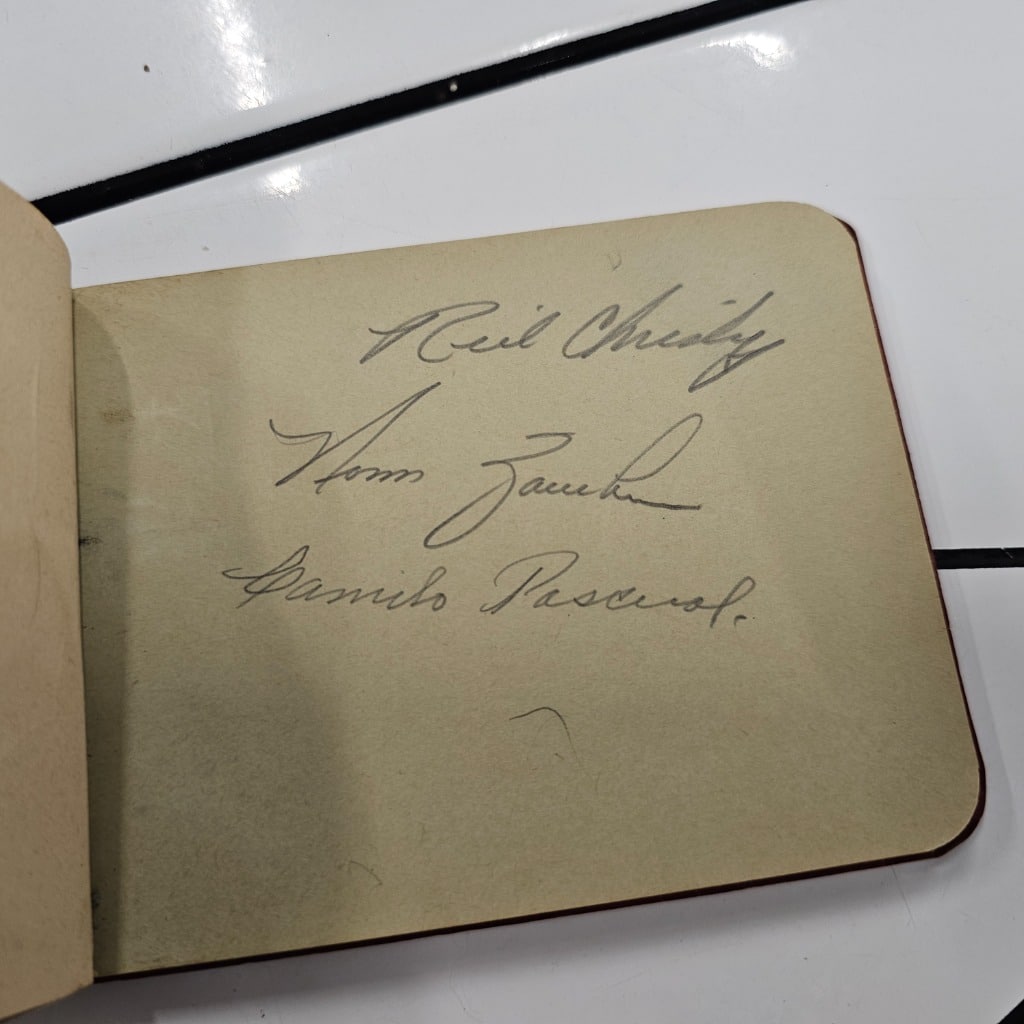 Neil Chrisley
Norm Zauchin
Camilo Pascual.